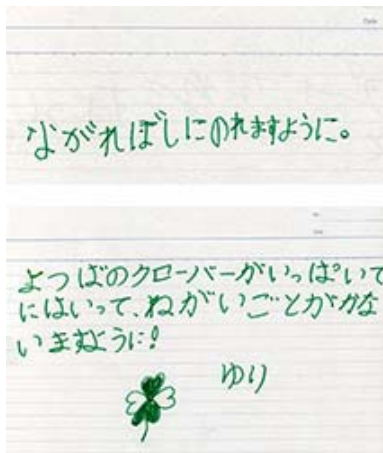 ながれぼしにのれますように。
よつばのクローバーがいっぱいて
にはいって、ねがいごとがかな
いますように!
ゆり